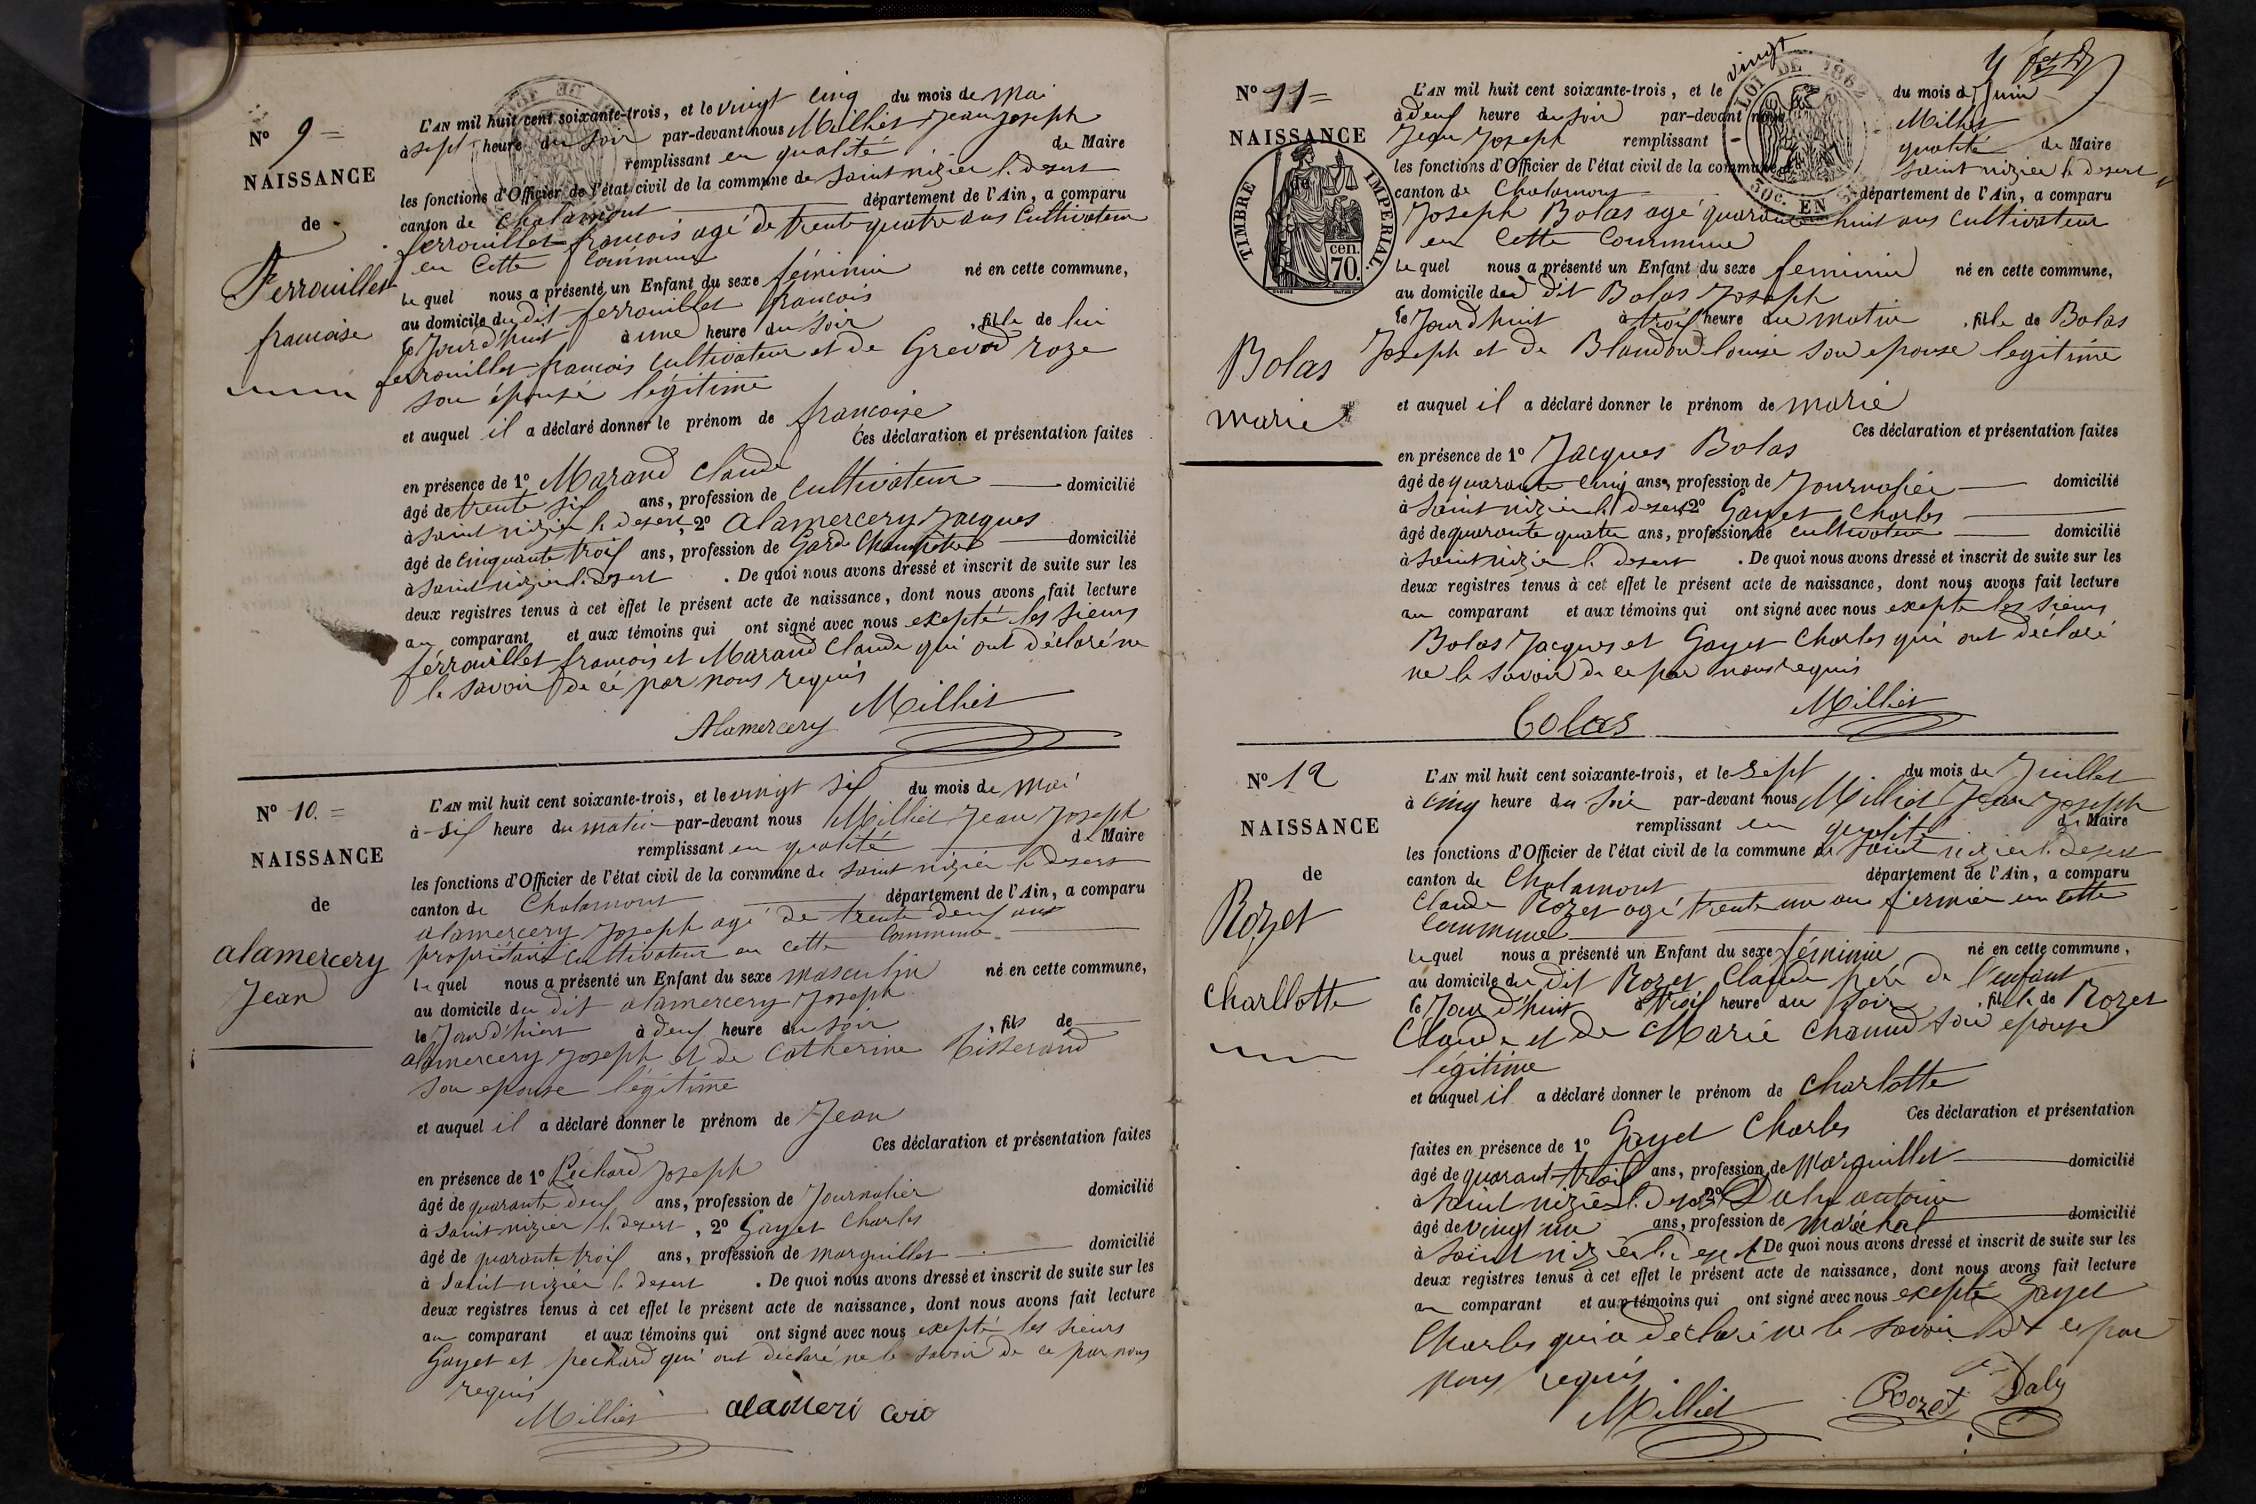 N° 9 =
NAISSANCE
de
Ferrouillet
francoise
L'AN mil huit cent soixante-trois, et le vingt cinq du mois de Mai
à sept heure du soir par-devant nous Milliet Jean Joseph
remplissant en qualité de Maire
les fonctions d'Officier de l'état civil de la commune de Saint nizier le desert
canton de Chalamont département de l'Ain, a comparu
ferrouillet francois agé de trente quatre ans Cultivateur
en Cette Commune
le quel nous a présenté un Enfant du sexe féminin né en cette commune,
au domicile du dit ferrouillet francois
le Jourd'huit à une heure du soir, fille de lui
ferrouillet francois Cultivateur et de Grevod roze
son épouse légitime
et auquel il a déclaré donner le prénom de francoise
Ces déclaration et présentation faites
en présence de 1° Marand Claude
âgé de trente six ans, profession de Cultivateur domicilié
à saint nizier le desert, 2° Alamercery Jacques
âgé de cinquante trois ans, profession de Garde Champetre domicilié
à Saint nizier le desert. De quoi nous avons dressé et inscrit de suite sur les
deux registres tenus à cet effet le présent acte de naissance, dont nous avons fait lecture
au comparant et aux témoins qui ont signé avec nous exepté les sieurs
férrouillet francois et Marand Claude qui ont déclaré ne
le savoir de ce par nous requis
Alamercery Milliet
N° 10. =
NAISSANCE
de
alamercery
Jean
L'AN mil huit cent soixante-trois, et le vingt six du mois de Mai
à six heure du matin par-devant nous Milliet Jean Joseph
remplissant en qualité de Maire
les fonctions d'Officier de l'état civil de la commune de saint nizier le desert
canton de Chalamont département de l'Ain, a comparu
alamercery Joseph agé de trente deux ans
propriétaire cultivateur en cette Commune
le quel nous a présenté un Enfant du sexe masculin né en cette commune,
au domicile du dit alamercery Joseph
le Jour d'hier à deux heure du soir, fils de
alamercery Joseph et de Catherine Tisserand
son epouse légitime
et auquel il a déclaré donner le prénom de Jean
Ces déclaration et présentation faites
en présence de 1° Péchard Joseph
âgé de quarante deux ans, profession de Journalier domicilié
à Saint nizier le desert, 2° Gayet Charles
âgé de quarante trois ans, profession de marguillet domicilié
à Saint nizier le desert. De quoi nous avons dressé et inscrit de suite sur les
deux registres tenus à cet effet le présent acte de naissance, dont nous avons fait lecture
au comparant et aux témoins qui ont signé avec nous exepté les sieurs
Gayet et pechard qui ont déclaré ne le savoir de ce par nous
requis
Milliet
N° 11 =
NAISSANCE
de
TIMBRE IMPÉRIAL.
cen. 70.
Bolas
marie
LOI DE 1862
50c. EN SUS
L'AN mil huit cent soixante-trois, et le vingt du mois de Juin
à deux heure du soir par-devant nous Milliet
Jean Joseph remplissant qualité de Maire
les fonctions d'Officier de l'état civil de la commune de saint nizier le desert
canton de Chalamont département de l'Ain, a comparu
Joseph Bolas agé quarante huit ans cultivateur
en Cette Commune
le quel nous a présenté un Enfant du sexe feminin né en cette commune,
au domicile du dit Bolas Joseph
le Jourd'huit à trois heure du matin, fille de Bolas
Joseph et de Blandon louise son epouse legitime
et auquel il a déclaré donner le prénom de marie
Ces déclaration et présentation faites
en présence de 1° Jacques Bolas
âgé de quarante cinq ans, profession de Journalier domicilié
à Saint nizier le desert 2° Gayet Charles
âgé de quarante quatre ans, profession de cultivateur domicilié
à saint nizier le desert. De quoi nous avons dressé et inscrit de suite sur les
deux registres tenus à cet effet le présent acte de naissance, dont nous avons fait lecture
au comparant et aux témoins qui ont signé avec nous exepté les sieurs
Bolas Jacques et Gayet Charles qui ont déclaré
ne le savoir de ce par nous requis
Bolas Milliet
N° 12
NAISSANCE
de
Rozet
Charllotte
L'AN mil huit cent soixante-trois, et le sept du mois de Juillet
à cinq heure du Soir par-devant nous Milliet Jean Joseph
remplissant en qualité de Maire
les fonctions d'Officier de l'état civil de la commune de Saint nizier le desert
canton de Chalamont département de l'Ain, a comparu
Claude Rozet agé trente un ans fermier en cette
Commune
le quel nous a présenté un Enfant du sexe féminin né en cette commune,
au domicile du dit Rozet Claude père de l'enfant
le Jour d'huit à trois heure du soir, fille de Rozet
Claude et de Marie Chanud son epouse
légitime
et auquel il a déclaré donner le prénom de Charlotte
Ces déclaration et présentation
faites en présence de 1° Gayet Charles
âgé de quarant trois ans, profession de Marguillet domicilié
à Saint nizier le desert 2° Daly antoine
âgé de vingt un ans, profession de maréchal domicilié
à saint nizier le desert De quoi nous avons dressé et inscrit de suite sur les
deux registres tenus à cet effet le présent acte de naissance, dont nous avons fait lecture
au comparant et aux témoins qui ont signé avec nous exepté Gayet
Charles qui a déclaré ne le savoir de ce par
nous requis.
Milliet Rozet Daly